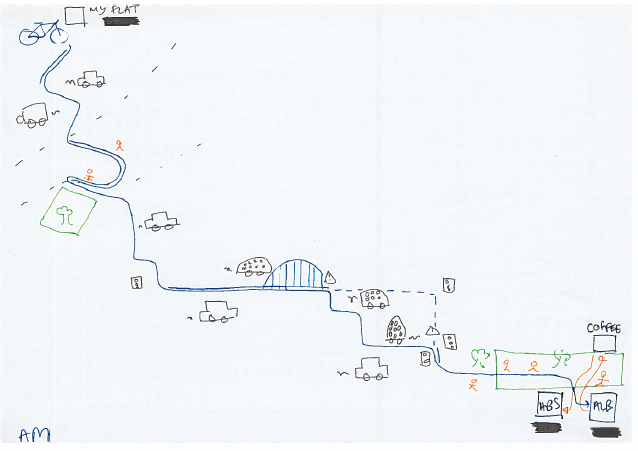 MY FLAT
COFFEE
ABS
ALB
AM